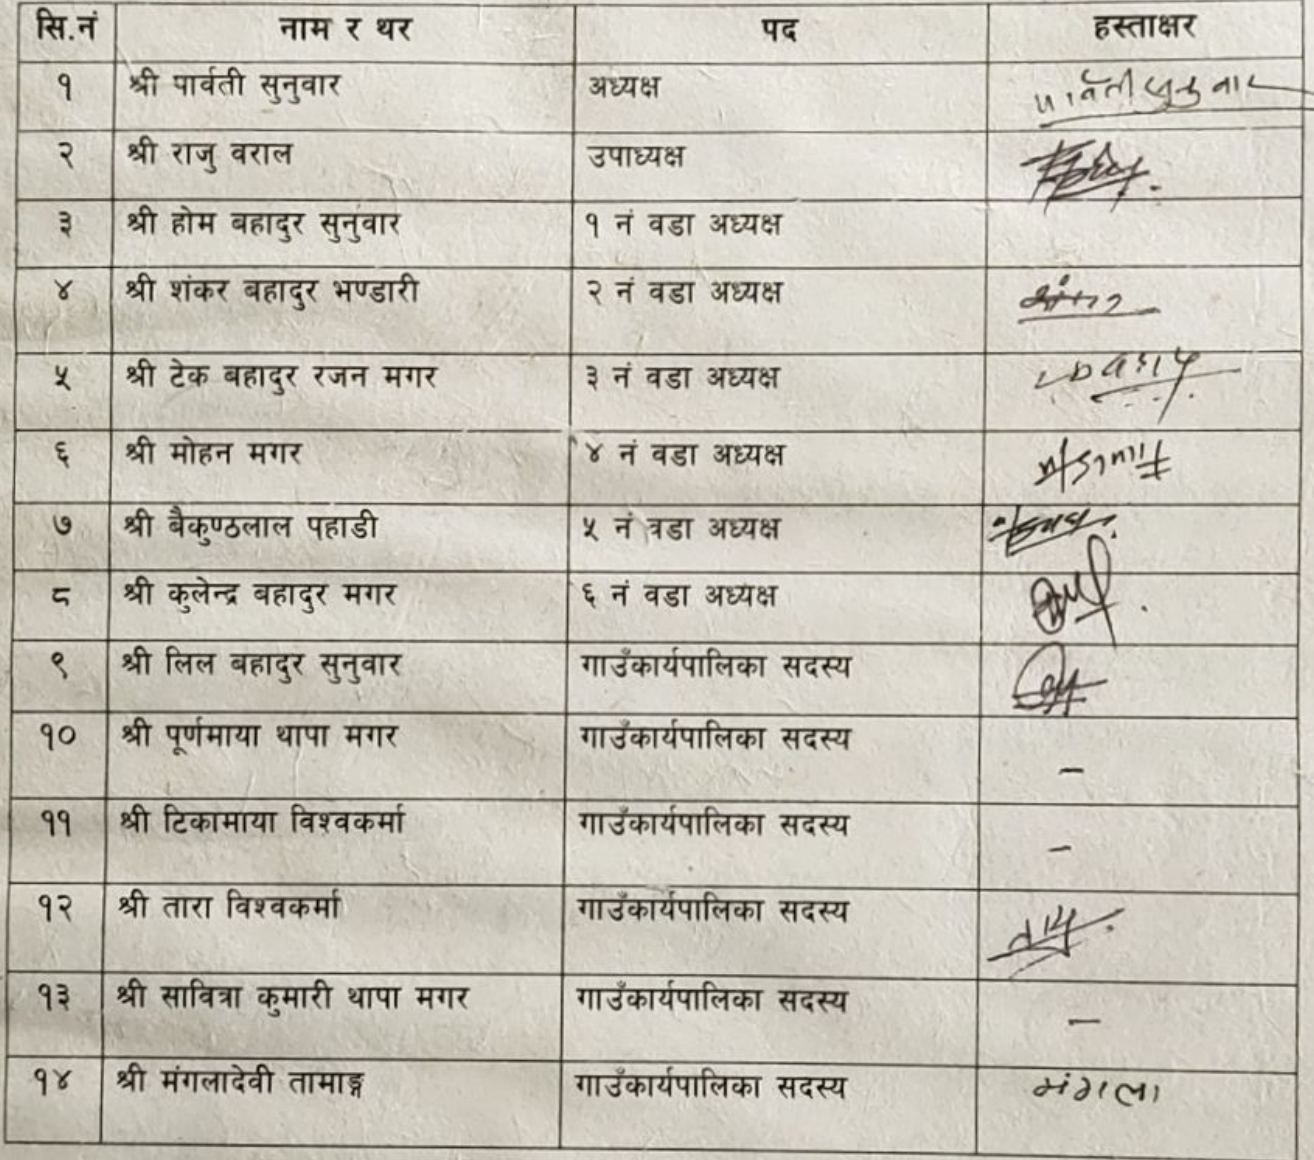 सि.नं नाम र थर पद हस्ताक्षर
१ श्री पार्वती सुनुवार अध्यक्ष पार्वती सुनुवार
२ श्री राजु वराल उपाध्यक्ष
३ श्री होम बहादुर सुनुवार १ नं वडा अध्यक्ष
४ श्री शंकर बहादुर भण्डारी २ नं वडा अध्यक्ष
५ श्री टेक बहादुर रजन मगर ३ नं वडा अध्यक्ष
६ श्री मोहन मगर ४ नं वडा अध्यक्ष
७ श्री बैकुण्ठलाल पहाडी ५ नं वडा अध्यक्ष
८ श्री कुलेन्द्र बहादुर मगर ६ नं वडा अध्यक्ष
९ श्री लिल बहादुर सुनुवार गाउँकार्यपालिका सदस्य
१० श्री पूर्णमाया थापा मगर गाउँकार्यपालिका सदस्य –
११ श्री टिकामाया विश्वकर्मा गाउँकार्यपालिका सदस्य –
१२ श्री तारा विश्वकर्मा गाउँकार्यपालिका सदस्य
१३ श्री सावित्रा कुमारी थापा मगर गाउँकार्यपालिका सदस्य –
१४ श्री मंगलादेवी तामाङ्ग गाउँकार्यपालिका सदस्य मंगला